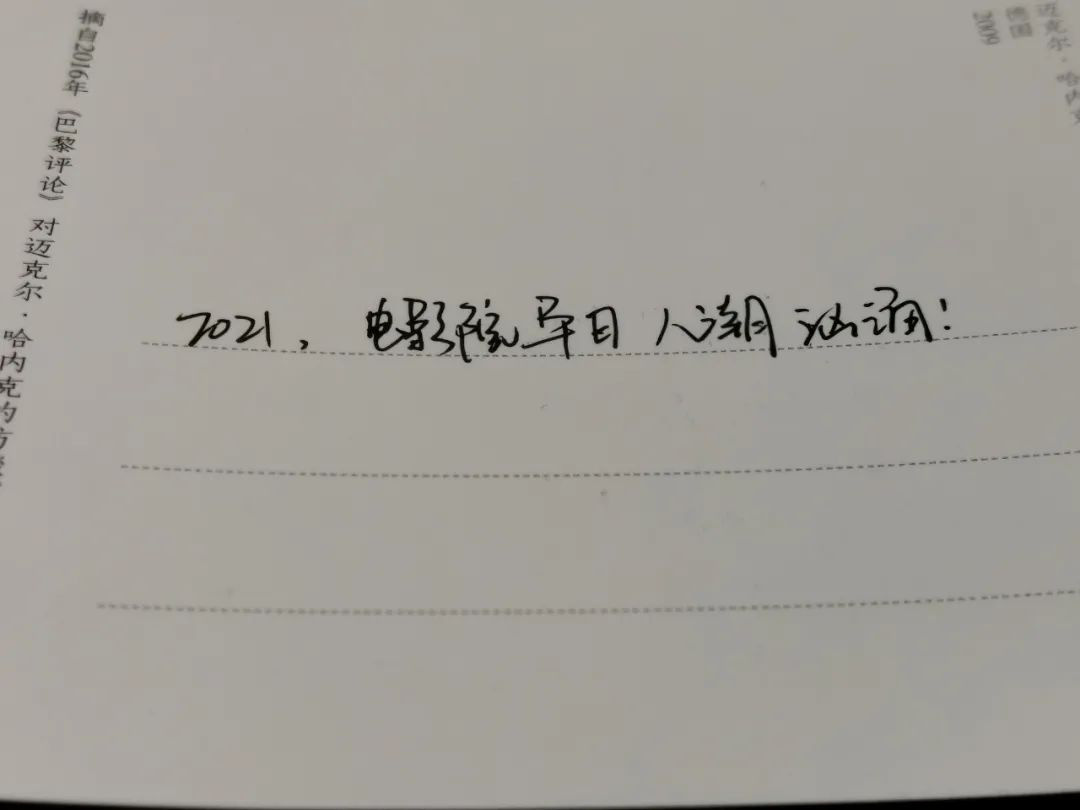 摘自2016年《巴黎评论》对迈克尔·哈内克的访
迈克尔·哈内克
德国
2009
2021，电影院早日人潮汹涌！